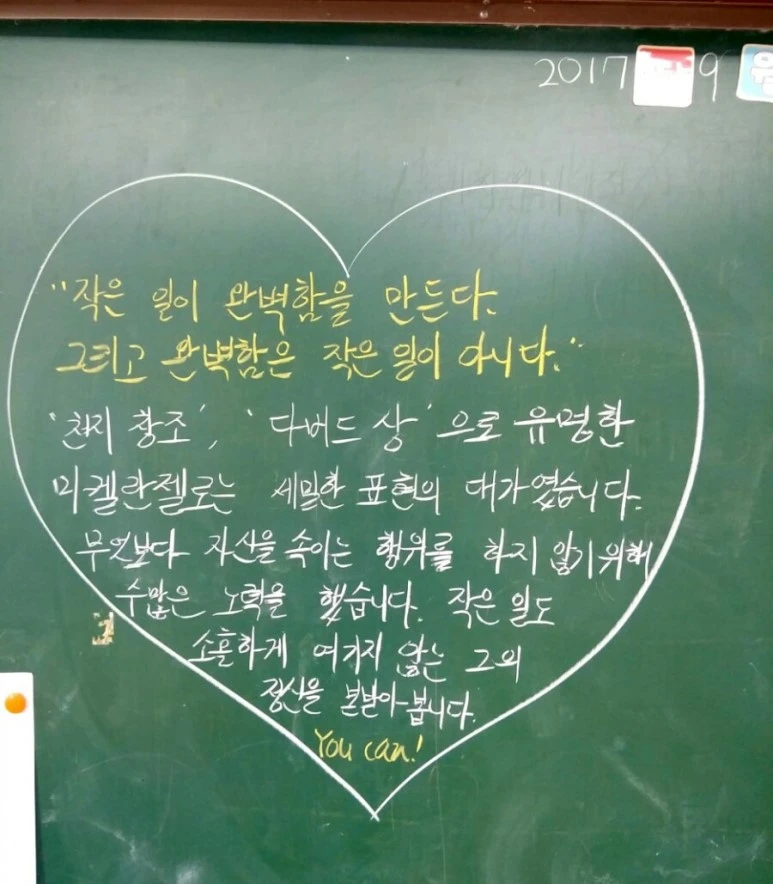 2017 9 월
"작은 일이 완벽함을 만든다.
그리고 완벽함은 작은 일이 아니다."
'천지 창조', '다버드 상'으로 유명한
미켈란젤로는 세밀한 표현의 대가였습니다.
무엇보다 자신을 속이는 행위를 하지 않기 위해
수많은 노력을 했습니다. 작은 일도
소홀하게 여기지 않는 그의
정신을 본받아 봅니다.
You can!